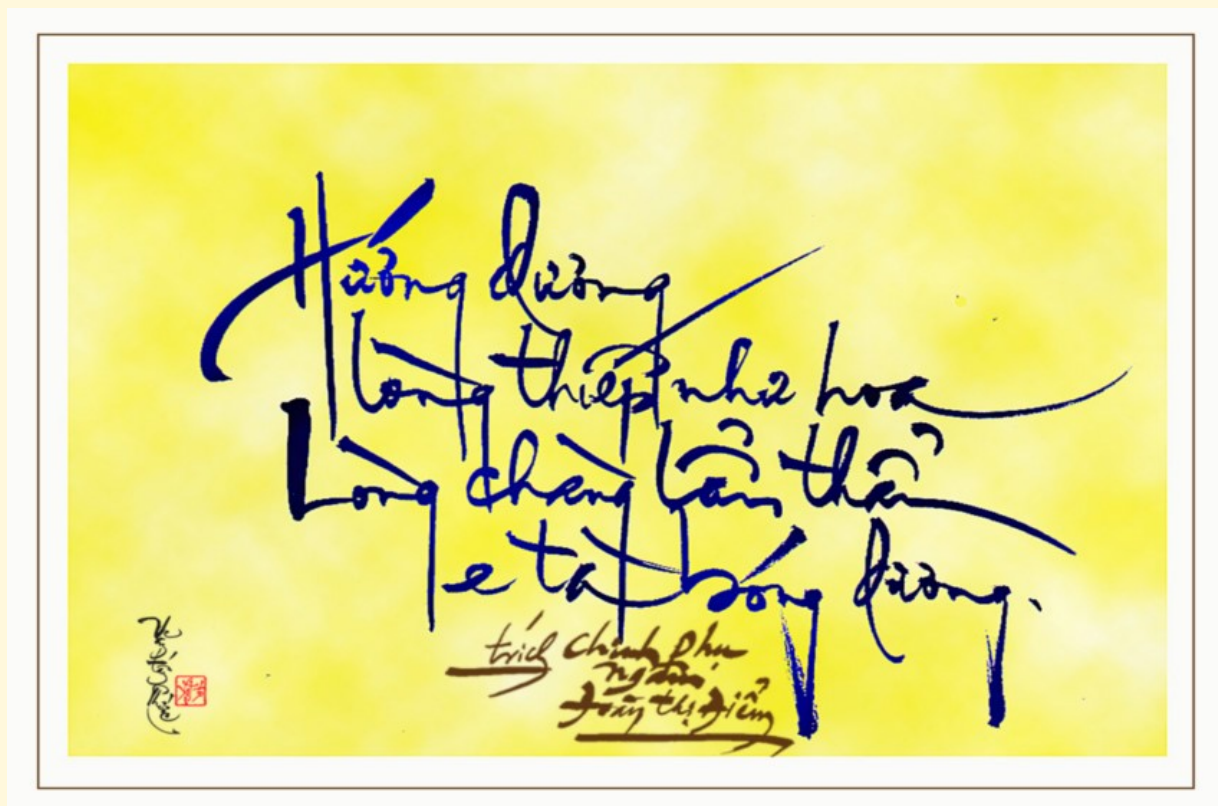 Hướng dương
lòng thiếp như hoa
Lòng chàng lẩn thẩn
e tà bóng dương.
trích Chinh Phụ
ngâm,
Đoàn Thị Điểm